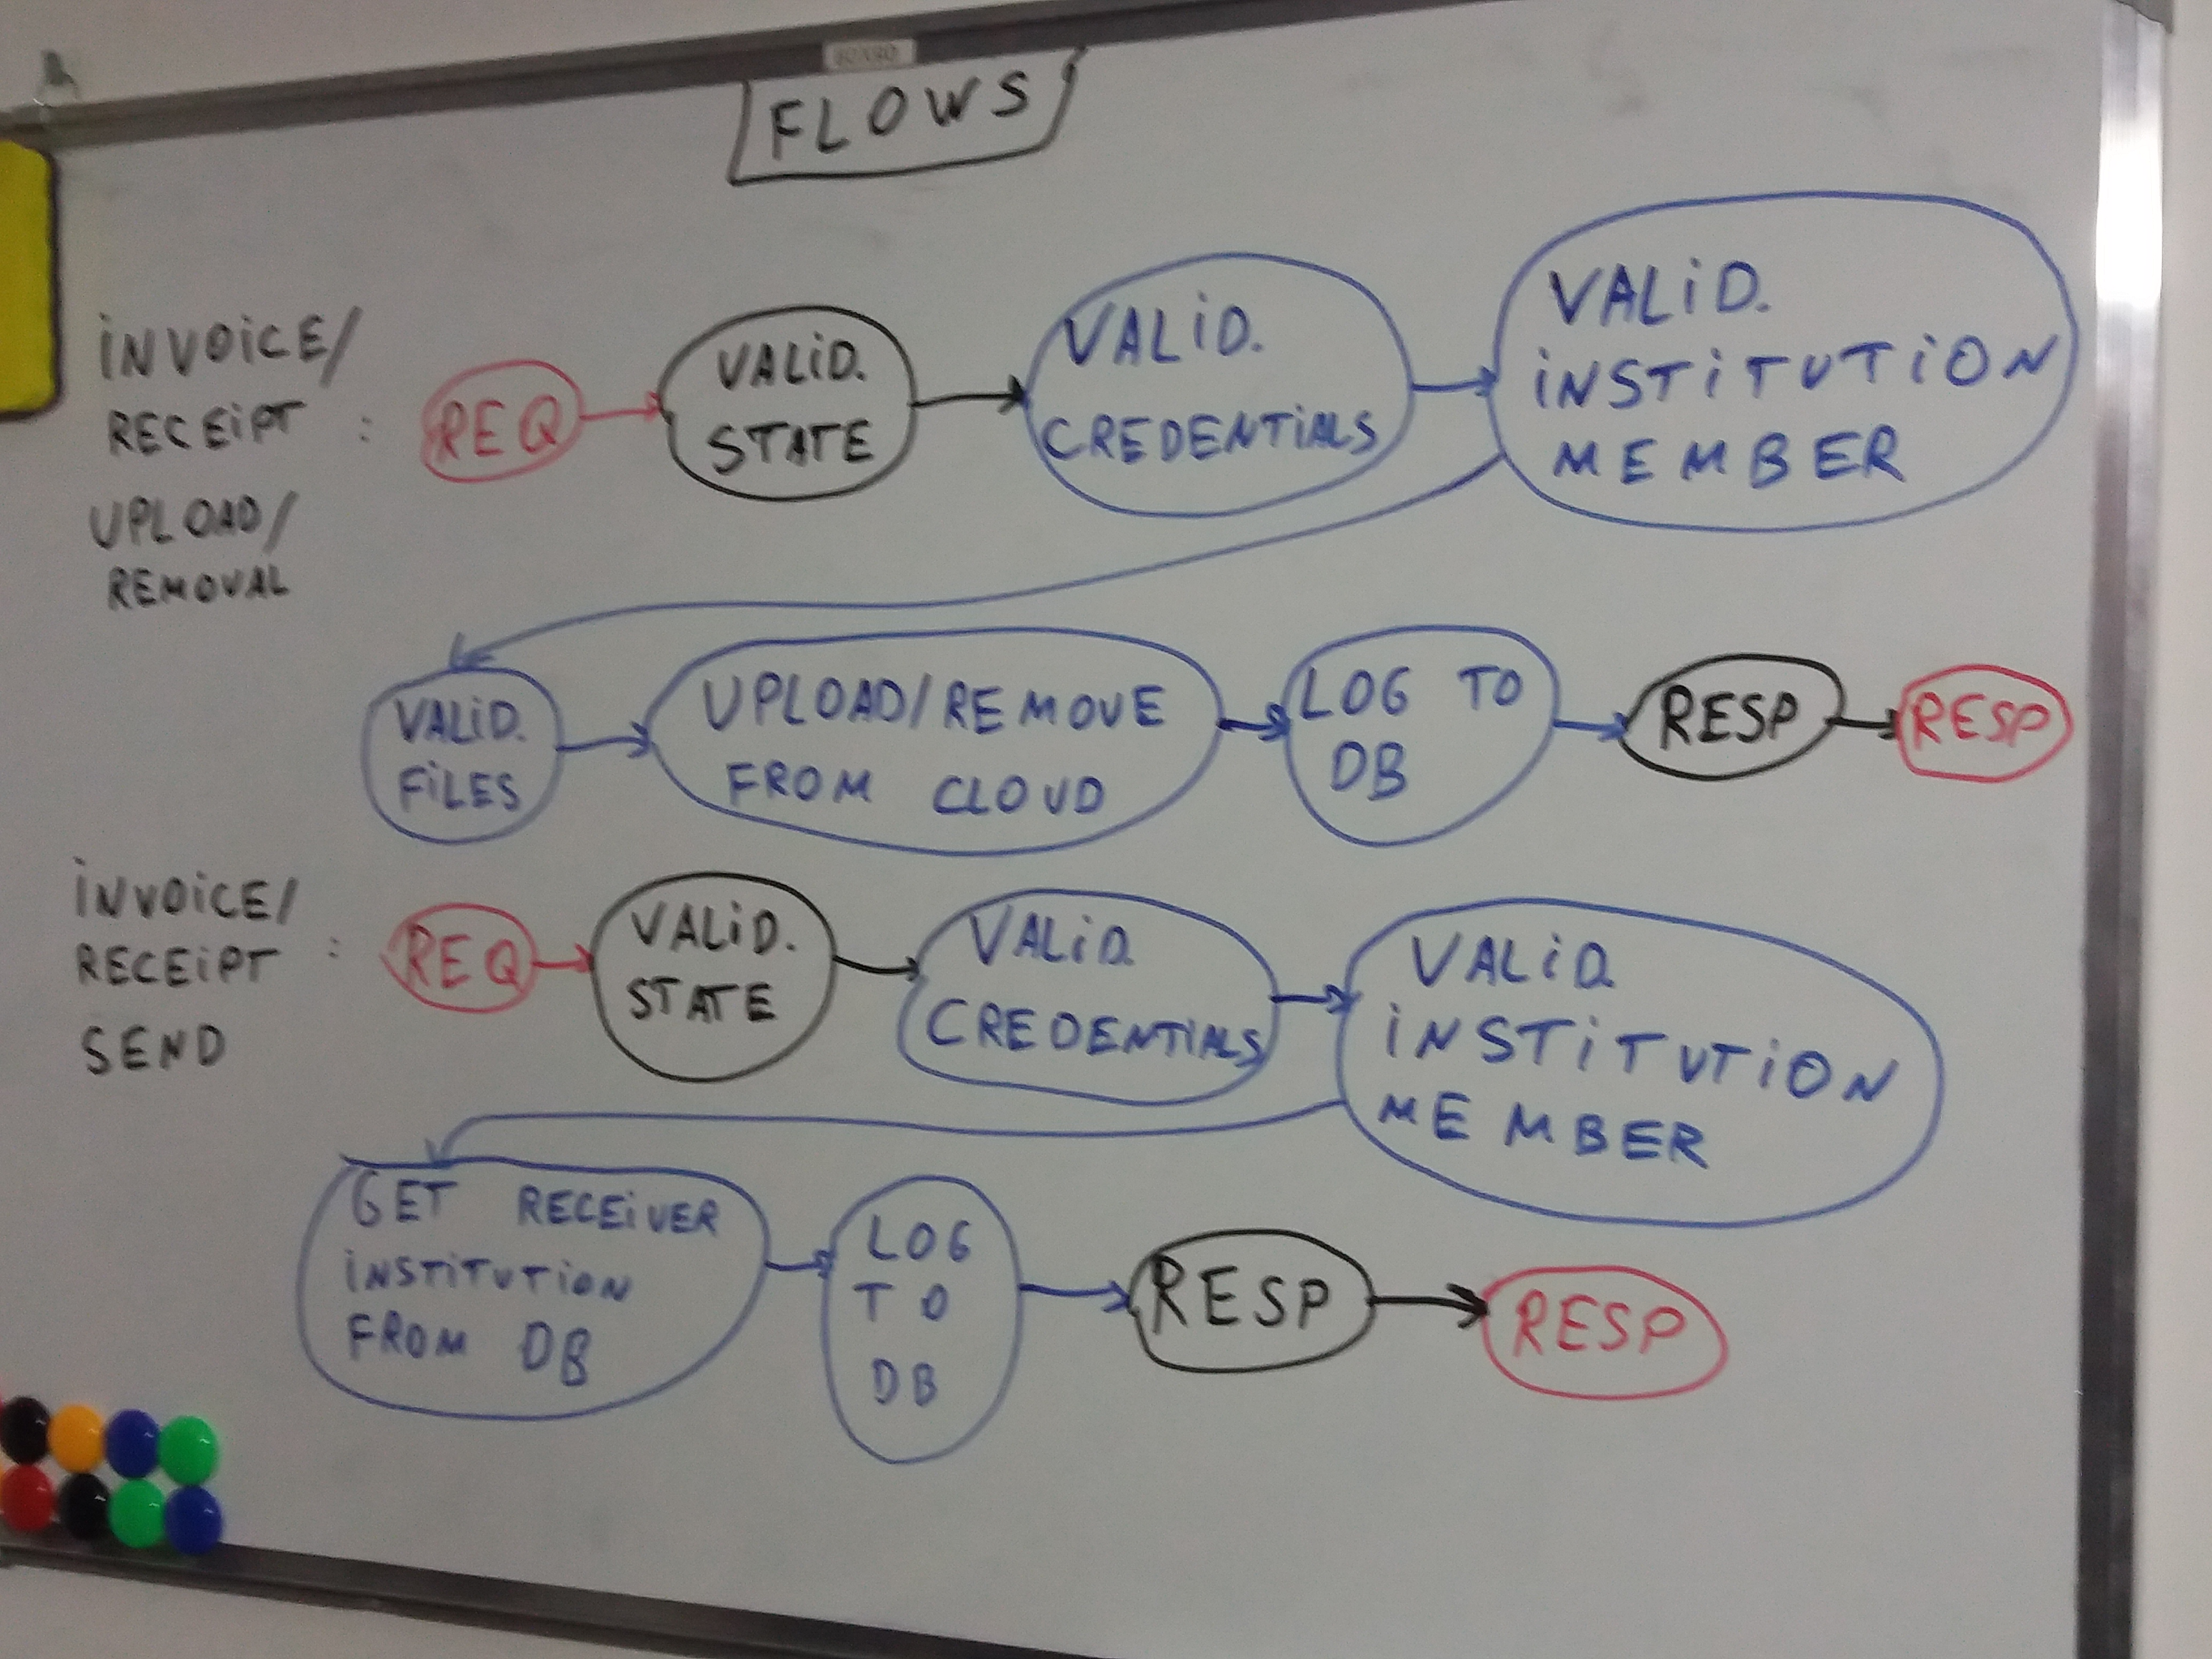 FLOWS
INVOICE/
RECEIPT :
UPLOAD/
REMOVAL
REQ
VALID.
STATE
VALID.
CREDENTIALS
VALID.
INSTITUTION
MEMBER
VALID.
FILES
UPLOAD/REMOVE
FROM CLOUD
LOG TO
DB
RESP
RESP
INVOICE/
RECEIPT :
SEND
REQ
VALID.
STATE
VALID.
CREDENTIALS
VALID.
INSTITUTION
MEMBER
GET RECEIVER
INSTITUTION
FROM DB
LOG
TO
DB
RESP
RESP